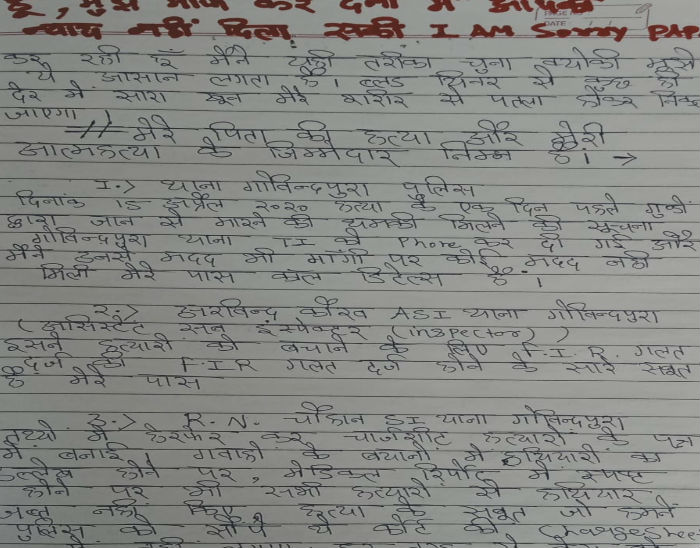 है, मुझे माफ कर देना मैं आपको
न्याय नहीं दिला सकी I AM Sorry PAP
PAGE NO
DATE
कर रही हूँ मैंने यही तरीका चुना क्योंकी मुझे
ये आसान लगता है। ब्लड थिनर से कुछ ही
देर में सारा खून मेरे शरीर से पतला होकर निक
जाएगा।
मेरे पिता की हत्या और मेरी
आत्महत्या के जिम्मेदार निम्न है। →
1.> थाना गोविन्दपुरा पुलिस
दिनांक 15 अप्रैल २०२० हत्या के एक दिन पहले गुंडो
द्वारा जान से मारने की धमकी मिलने की सूचना
गोविन्दपुरा थाना TI को Phone कर दी गई और
मैंने उनसे मदद भी मांगी पर कोई मदद नही
मिली मेरे पास कॉल डिटेल्स है।
२.> अरविन्द कौरव ASI थाना गोविन्दपुरा
(असिस्टेंट सब इंस्पेक्टर (inspector))
इसने हत्यारों को बचाने के लिए F.I.R. गलत
दर्ज की F.I.R गलत दर्ज होने के सारे सबूत
है मेरे पास
3.> R.N. चौहान SI थाना गोविन्दपुरा
तथ्यों में हेरफेर कर चार्जशीट हत्यारों के पक्ष
में बनाई। गवाहों के बयानों में हथियारों का
उल्लेख होने पर, मेडिकल रिपोर्ट में स्पष्ट
होने पर भी सभी हत्यारों से हथियार
जब्त नही किए हत्या के सबूत जो हमने
पुलिस को सौंपे थे कोर्ट की Chargeshee